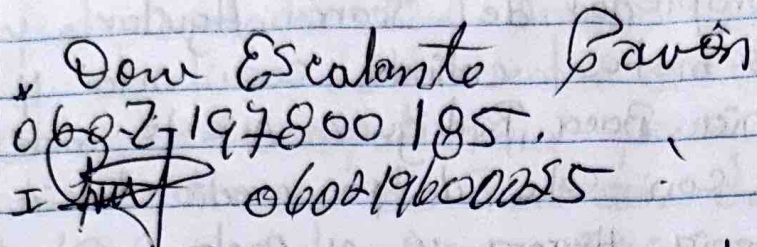 * Dow Escalante Pavón
0602-197800185.
I 0602196000255